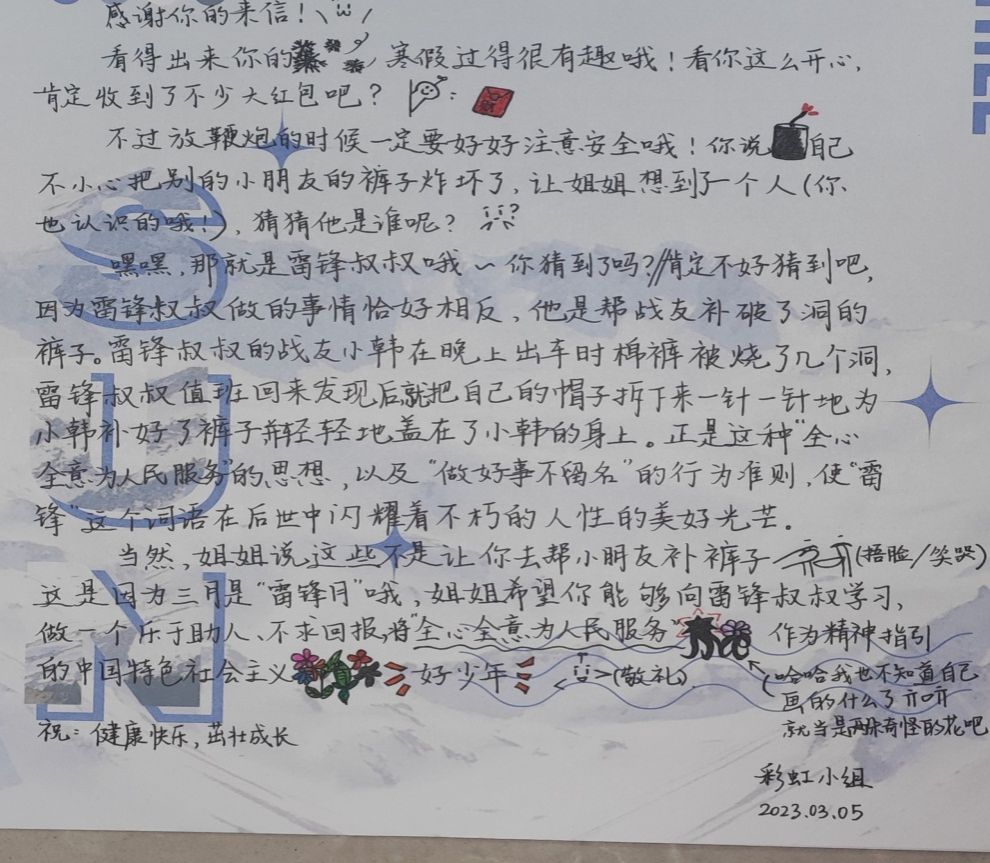 感谢你的来信！
看得出来你的寒假过得很有趣哦！看你这么开心，
肯定收到了不少大红包吧？
不过放鞭炮的时候一定要好好注意安全哦！你说自己
不小心把别的小朋友的裤子炸坏了，让姐姐想到了一个人（你
也认识的哦！），猜猜他是谁呢？
嘿嘿，那就是雷锋叔叔哦～你猜到了吗？肯定不好猜到吧，
因为雷锋叔叔做的事情恰好相反，他是帮战友补破了洞的
裤子。雷锋叔叔的战友小韩在晚上出车时棉裤被烧了几个洞，
雷锋叔叔值班回来发现后就把自己的帽子拆下来一针一针地为
小韩补好了裤子并轻轻地盖在了小韩的身上。正是这种“全心
全意为人民服务”的思想，以及“做好事不留名”的行为准则，使“雷
锋”这个词语在后世中闪耀着不朽的人性的美好光芒。
当然，姐姐说这些不是让你去帮小朋友补裤子（捂脸/笑哭）
这是因为三月是“雷锋月”哦，姐姐希望你能够向雷锋叔叔学习，
做一个乐于助人、不求回报，将“全心全意为人民服务”作为精神指引
的中国特色社会主义好少年（敬礼）
（哈哈我也不知道自己
画的什么了
就当是两株奇怪的花吧
祝：健康快乐，茁壮成长
彩虹小组
2023.03.05
SUN